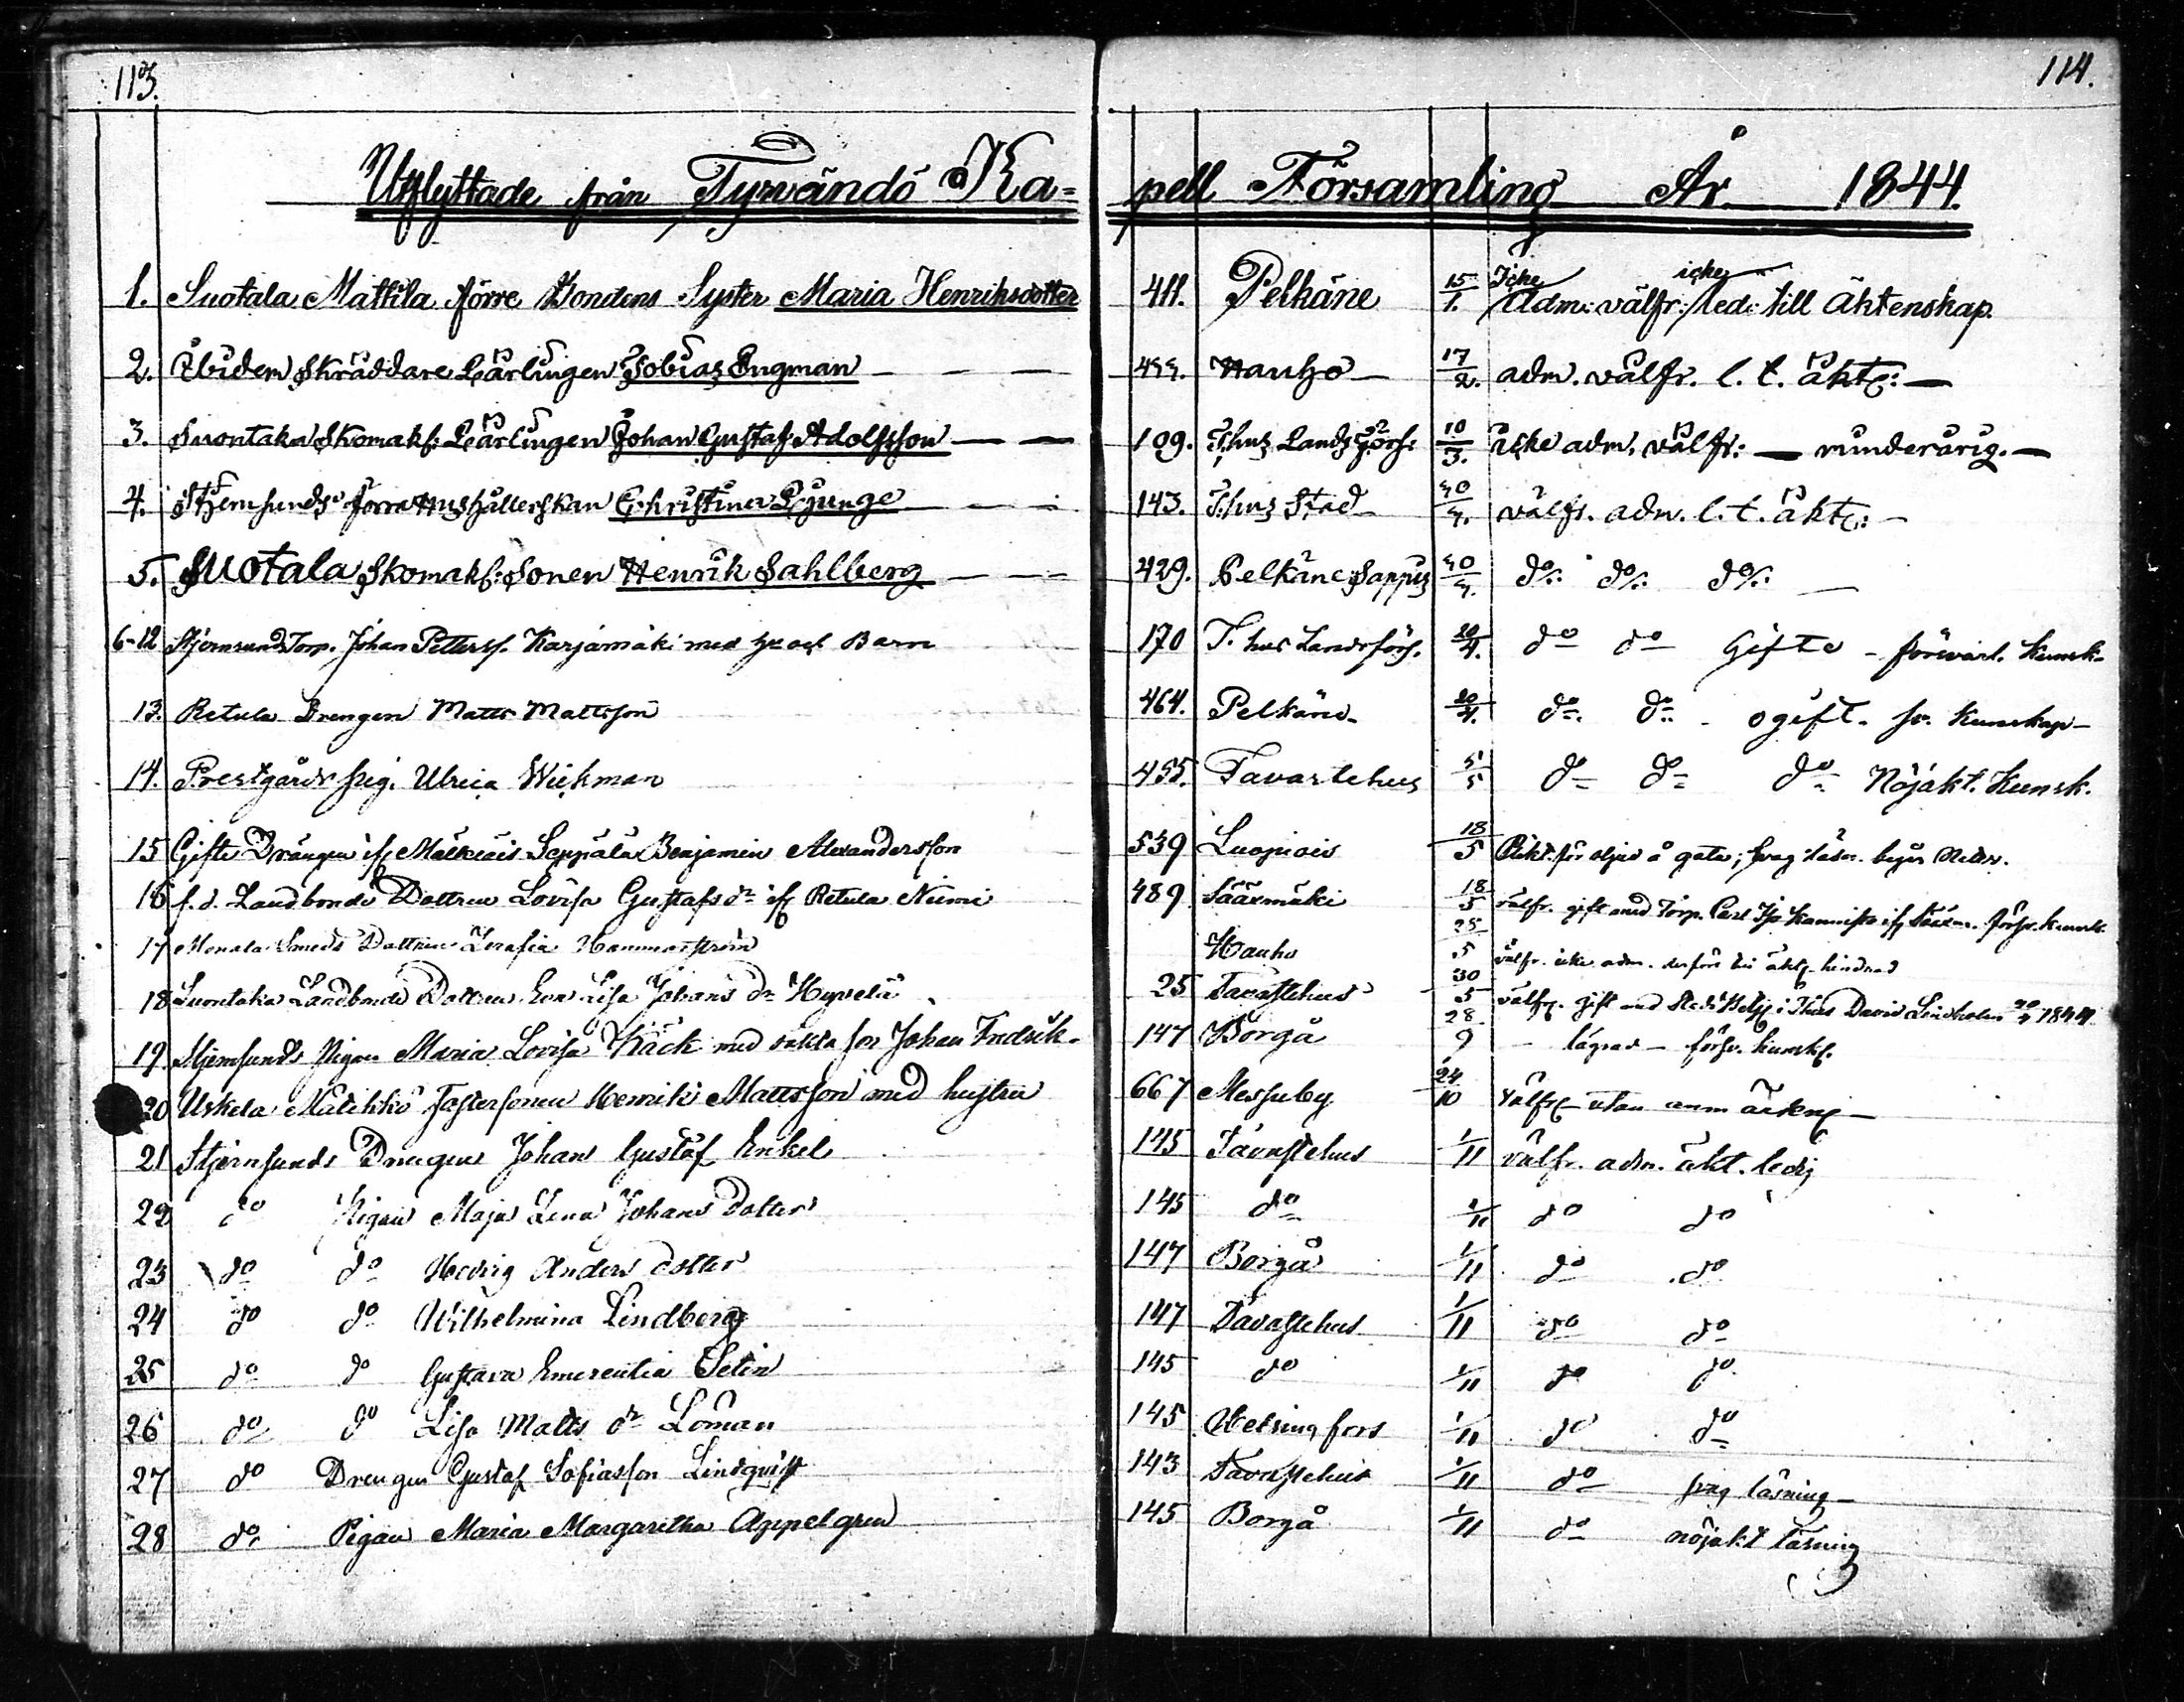 113. 114.
Utflyttade från Tyrvändö Ka= pell Församling År 1844.
1. Suotala Mattila förre Bondens Syster Maria Henriksdotter 411. Pelkäne 15/1. Icke adm: välfr: icke led: till äktenskap.
2. Ibidem Skräddare Lärlingen Tobias Engman — — — Hauho — 17/2. adm. välfr. l. t. äkt: —
3. Suontaka Skomak: Lärlingen Johan Gustaf Adolfsson — — 109. T.hus Lands förs. 10/3. icke adm. välfr: — minderårig. —
4. Stjernsunds förra Hushållerskan Christina Ljunge — — 143. T.hus Stad välfr. adm. l. t. äkt: —
5. Suotala Skomak: Sonen Henrik Sahlberg — — 429. Pelkäne do/: do/: do/: —
6-12 Stjernsunds Torp. Johan Petterss. Karjamäki med h: och Barn 170 T. hus Landsförs. 20/4. do do Gifte - försvarl. Kunsk.
13. Retula Drengen Matts Mattsson 464. Pelkäne 20/4. do do - ogift. sv. Kunskap —
14. Prestgårds pig. Ulrica Wickman 455. Tavastehus 5/5 do do do Nöjakt. Kunsk.
15 Gifte Drängen if Mälkiäis Seppälä Benjamin Alexandersson 539 Luopiois 18/5
16 f. d. Landbonde Dottren Lovisa Gustafs dr if Retula Niemi 489 Sääxmäki 18/5 välfr. gift med Torp. Carl
17 Monala Smeds Dottren Serafia Hammarström Hauho 25/5 välfr. icke adm. derföre till äkt. hindrad
18 Suontaka Landbonde Dottren Eva Lisa Johans dr Hypelä 25 Tavastehus 30/5 välfr. gift med David Lindholm 1844.
19. Stjernsunds Pigan Maria Lovisa Käck med oäkta son Johan Fredrik. 147 Borgå 28/9 - lägrad - försv. kunsk.
20 Uskela Matikko Fastersonen Henrik Mattsson med hustru 667 Messuby 24/10 välfr. utan anm ärkn —
21 Stjernsunds Drengen Johan Gustaf Enkel 145 Tavastehus 1/11 välfr. adm. äkt. ledig
22 do Pigan Maja Lena Johans dotter 145 do 1/11 do do
23 do do Hedvig Anders dotter 147 Borgå 1/11 do do
24 do do Wilhelmina Lindberg 147 Tavastehus 1/11 do do
25 do do Gustava Emerentia Selin 145 do 1/11 do do
26 do do Lisa Matts dr Loman 145 Helsingfors 1/11 do do
27 do Drengen Gustaf Sofiasson Lindqvist 143 Tavastehus 1/11 do svag läsning —
28 do Pigan Maria Margaretha Appelgren 145 Borgå 1/11 do nöjakt läsning